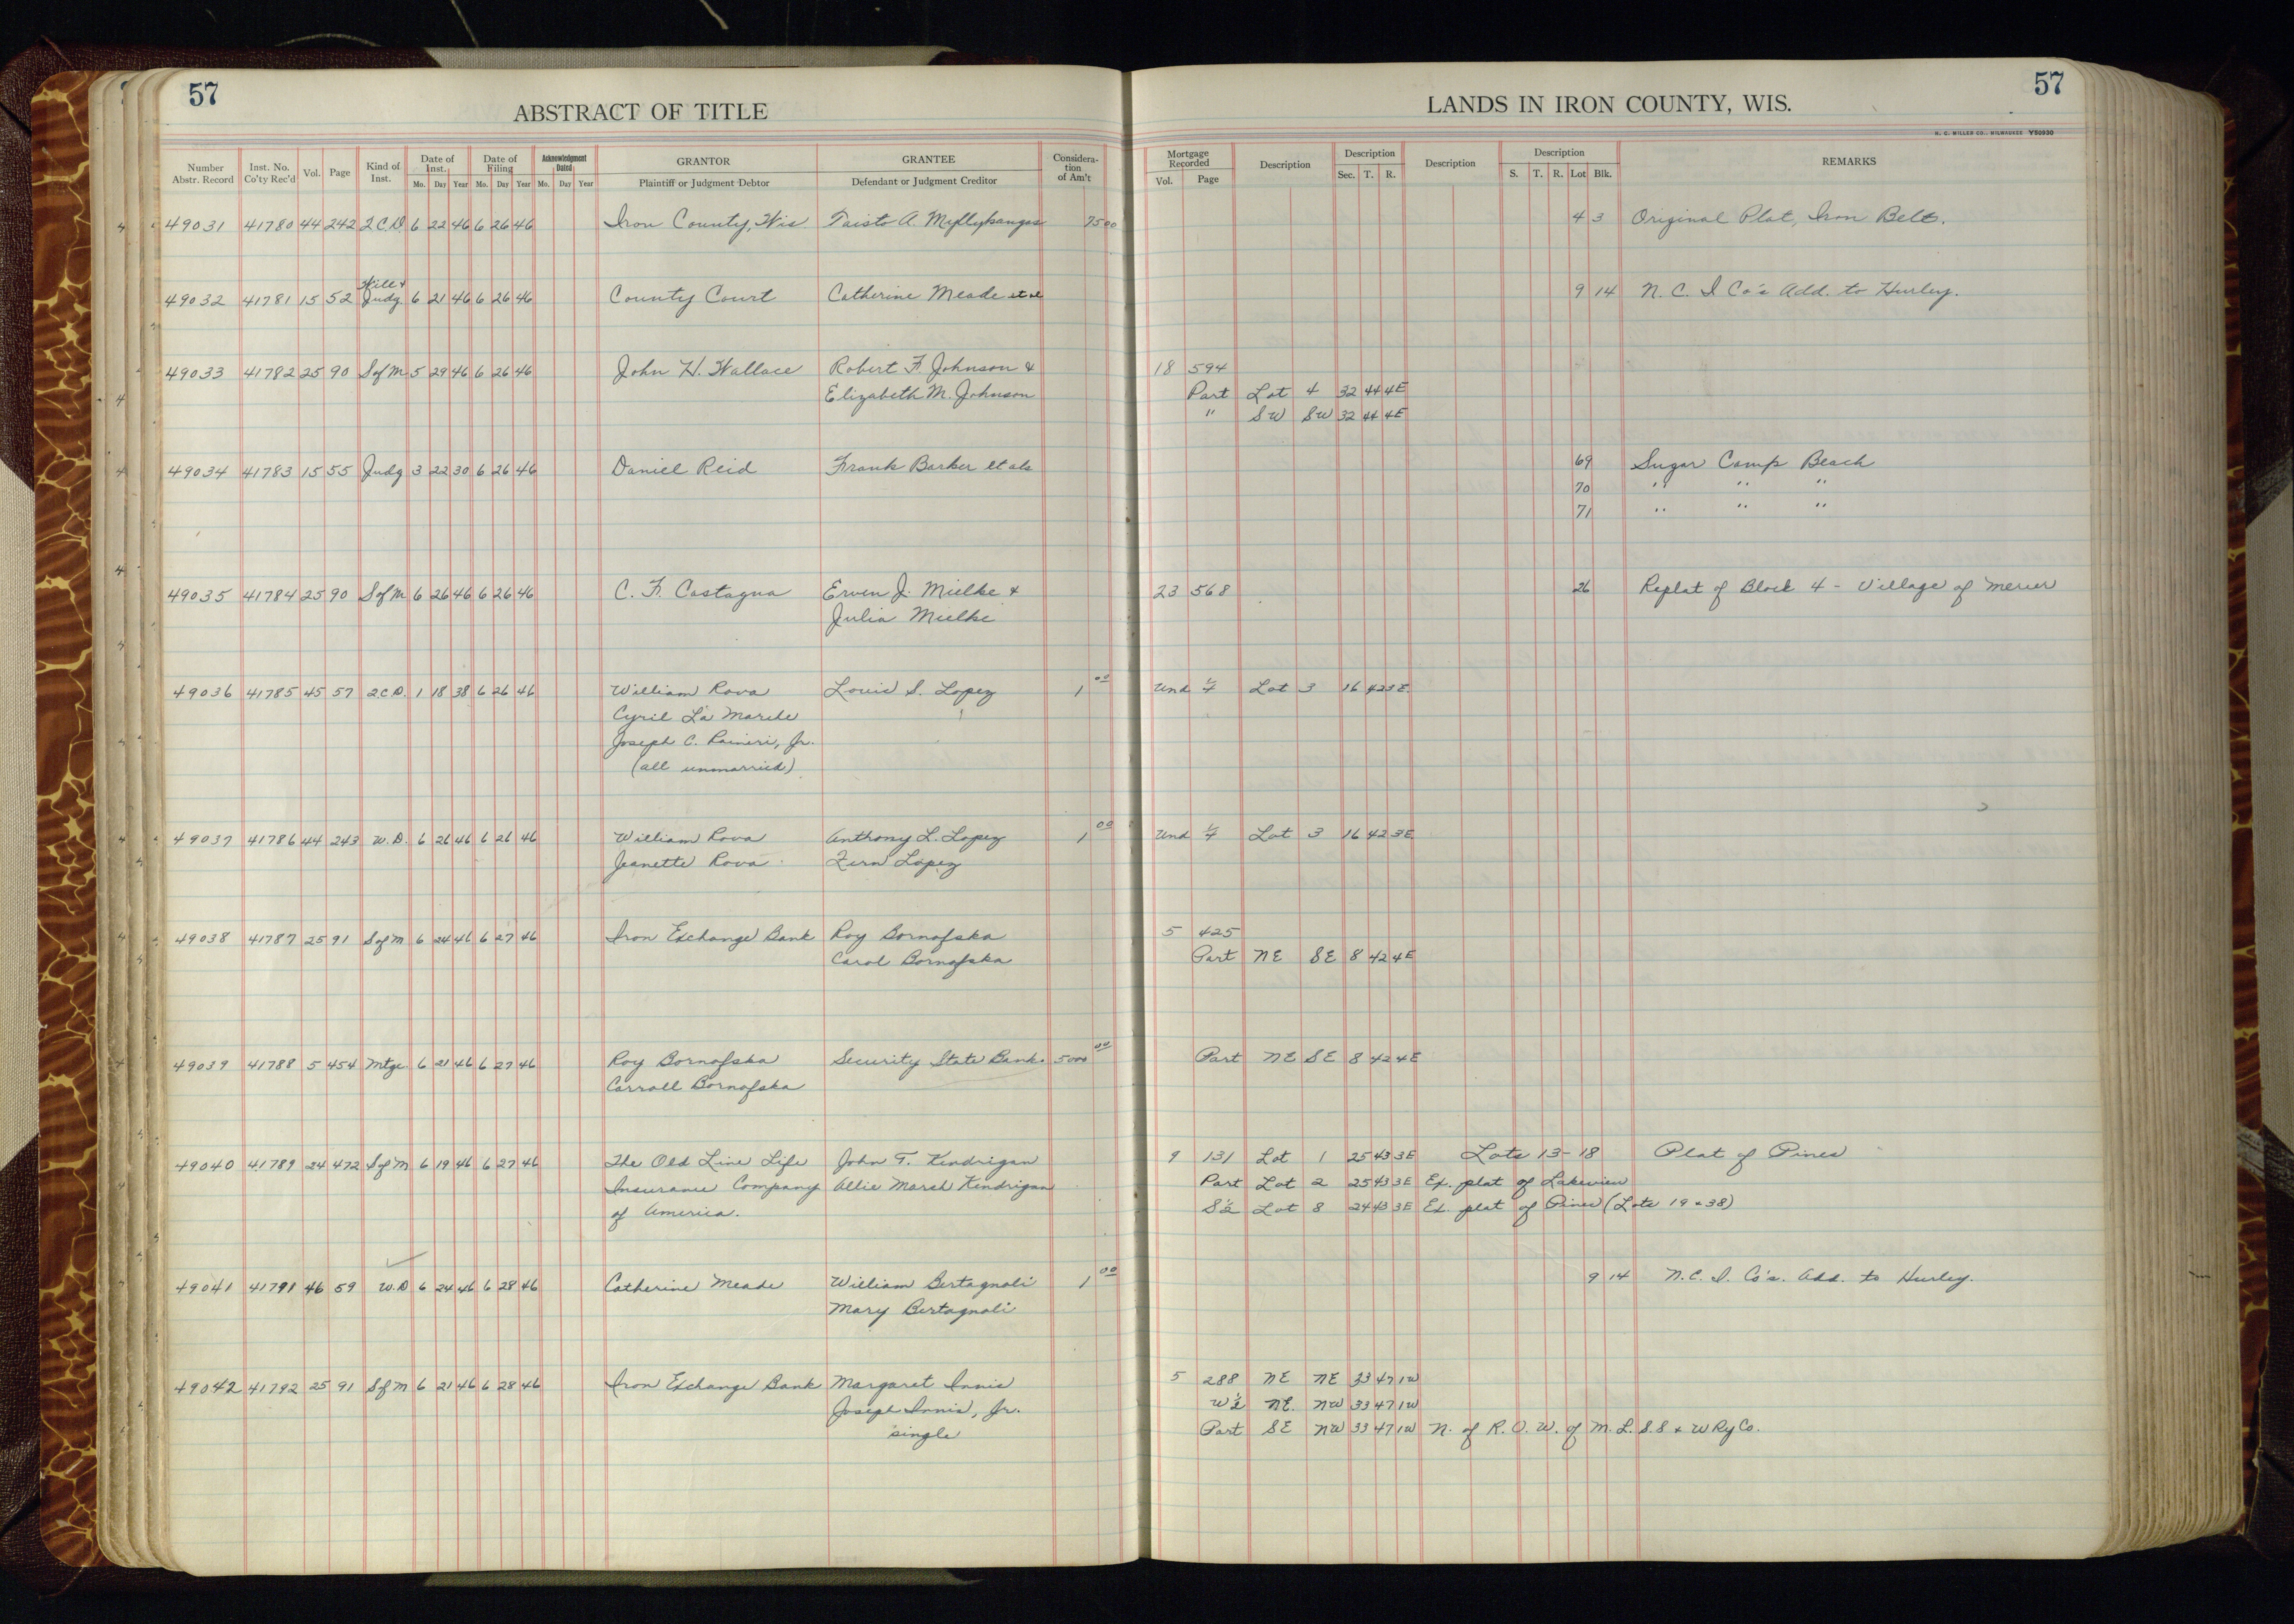 57
ABSTRACT OF TITLE
LANDS IN IRON COUNTY, WIS.
57
H. C. MILLER CO., MILWAUKEE Y50930
Number Abstr. Record | Inst. No. Co'ty Rec'd | Vol. | Page | Kind of Inst. | Date of Inst. Mo. Day Year | Date of Filing Mo. Day Year | Acknowledgment Dated Mo. Day Year | GRANTOR Plaintiff or Judgment Debtor | GRANTEE Defendant or Judgment Creditor | Consideration of Am't | Mortgage Recorded Vol. Page | Description | Description Sec. T. R. | Description | Description S. T. R. Lot Blk. | REMARKS
49031 41780 44 242 Q.C.D. 6 22 46 6 26 46 Iron County, Wis Taisto A. Myllykangas 75 00 4 3 Original Plat, Iron Belt.
Will &
49032 41781 15 52 Judg. 6 21 46 6 26 46 County Court Catherine Meade et al 9 14 N. C. I Co's Add. to Hurley.
49033 41782 25 90 S of M 5 29 46 6 26 46 John H. Wallace Robert F. Johnson & 18 594
Elizabeth M. Johnson Part Lot 4 32 44 4E
" SW SW 32 44 4E
49034 41783 15 55 Judg 3 22 30 6 26 46 Daniel Reid Frank Barker et als 69 Sugar Camp Beach
70 " " "
71 " " "
49035 41784 25 90 S of M 6 26 46 6 26 46 C. F. Castagna Erven J. Mielke & 23 568 26 Replat of Block 4 - Village of Mercer
Julia Mielke
49036 41785 45 57 Q.C.D. 1 18 38 6 26 46 William Rova Louis S. Lopez 1 00 Und Lot 3 16 42 3E
Cyril La Marche
Joseph C. Raineri, Jr.
(all unmarried)
49037 41786 44 243 W.D. 6 26 46 6 26 46 William Rova Anthony L. Lopez 1 00 Und Lot 3 16 42 3E
Jeanette Rova Fern Lopez
49038 41787 25 91 S of M 6 24 46 6 27 46 Iron Exchange Bank Roy Bornofska 5 425
Carol Bornofska Part NE SE 8 42 4E
49039 41788 5 454 Mtge 6 21 46 6 27 46 Roy Bornofska Security State Bank 5000 00 Part NE SE 8 42 4E
Carroll Bornofska
49040 41789 24 472 S of M 6 19 46 6 27 46 The Old Line Life John T. Kendrigan 9 131 Lot 1 25 43 3E Lots 13-18 Plat of Pines
Insurance Company Allie Marsh Kendrigan Part Lot 2 25 43 3E Ex. plat of Lakeview
of America. S½ Lot 8 24 43 3E Ex. plat of Pines (Lots 19 & 38)
49041 41791 46 59 W.D 6 24 46 6 28 46 Catherine Meade William Bertagnoli 1 00 9 14 N.C.I. Co's. Add. to Hurley.
Mary Bertagnoli
49042 41792 25 91 S of M 6 21 46 6 28 46 Iron Exchange Bank Margaret Innis 5 288 NE NE 33 47 1W
Joseph Innis, Jr. W½ NE. NW 33 47 1W
single Part SE NW 33 47 1W N. of R. O. W. of M. L. S. S & W Ry Co.